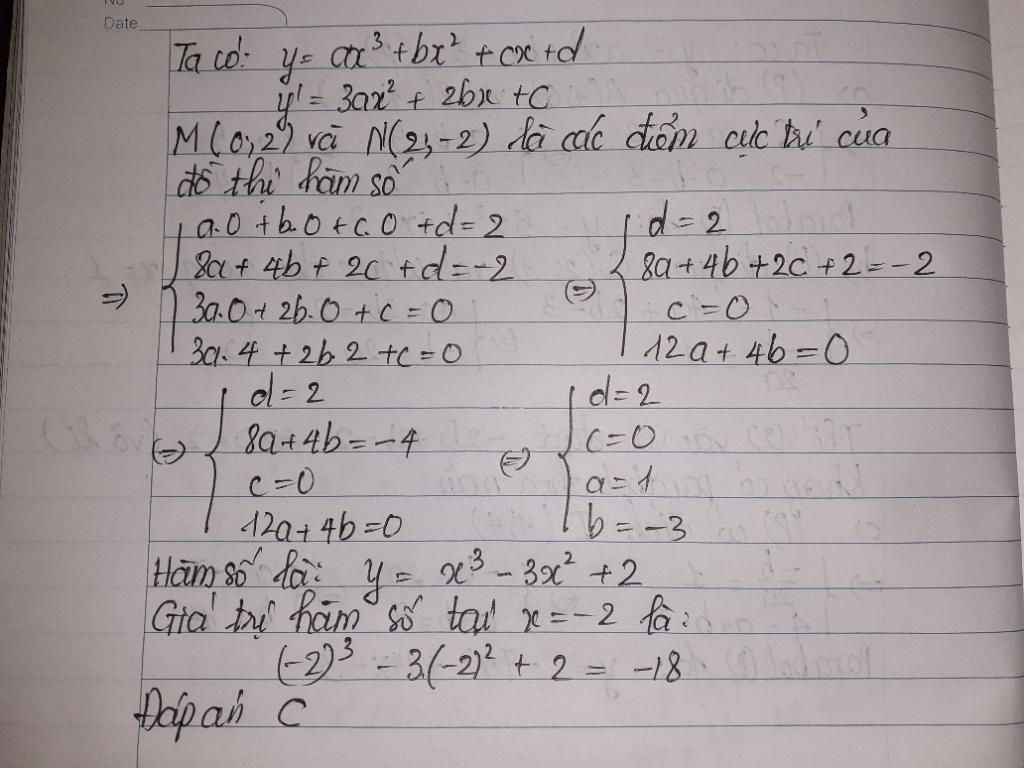 No
Date
Ta có: y = ax³ + bx² + cx + d
y' = 3ax² + 2bx + c
M(0;2) và N(2;-2) là các điểm cực trị của
đồ thị hàm số
a.0 + b.0 + c.0 + d = 2
d = 2
8a + 4b + 2c + d = -2
8a + 4b + 2c + 2 = -2
⇒
⇔
3a.0 + 2b.0 + c = 0
c = 0
3a.4 + 2b.2 + c = 0
12a + 4b = 0
d = 2
d = 2
⇔
8a + 4b = -4
⇔
c = 0
c = 0
a = 1
12a + 4b = 0
b = -3
Hàm số là: y = x³ - 3x² + 2
Giá trị hàm số tại x = -2 là:
(-2)³ - 3.(-2)² + 2 = -18
Đáp án C